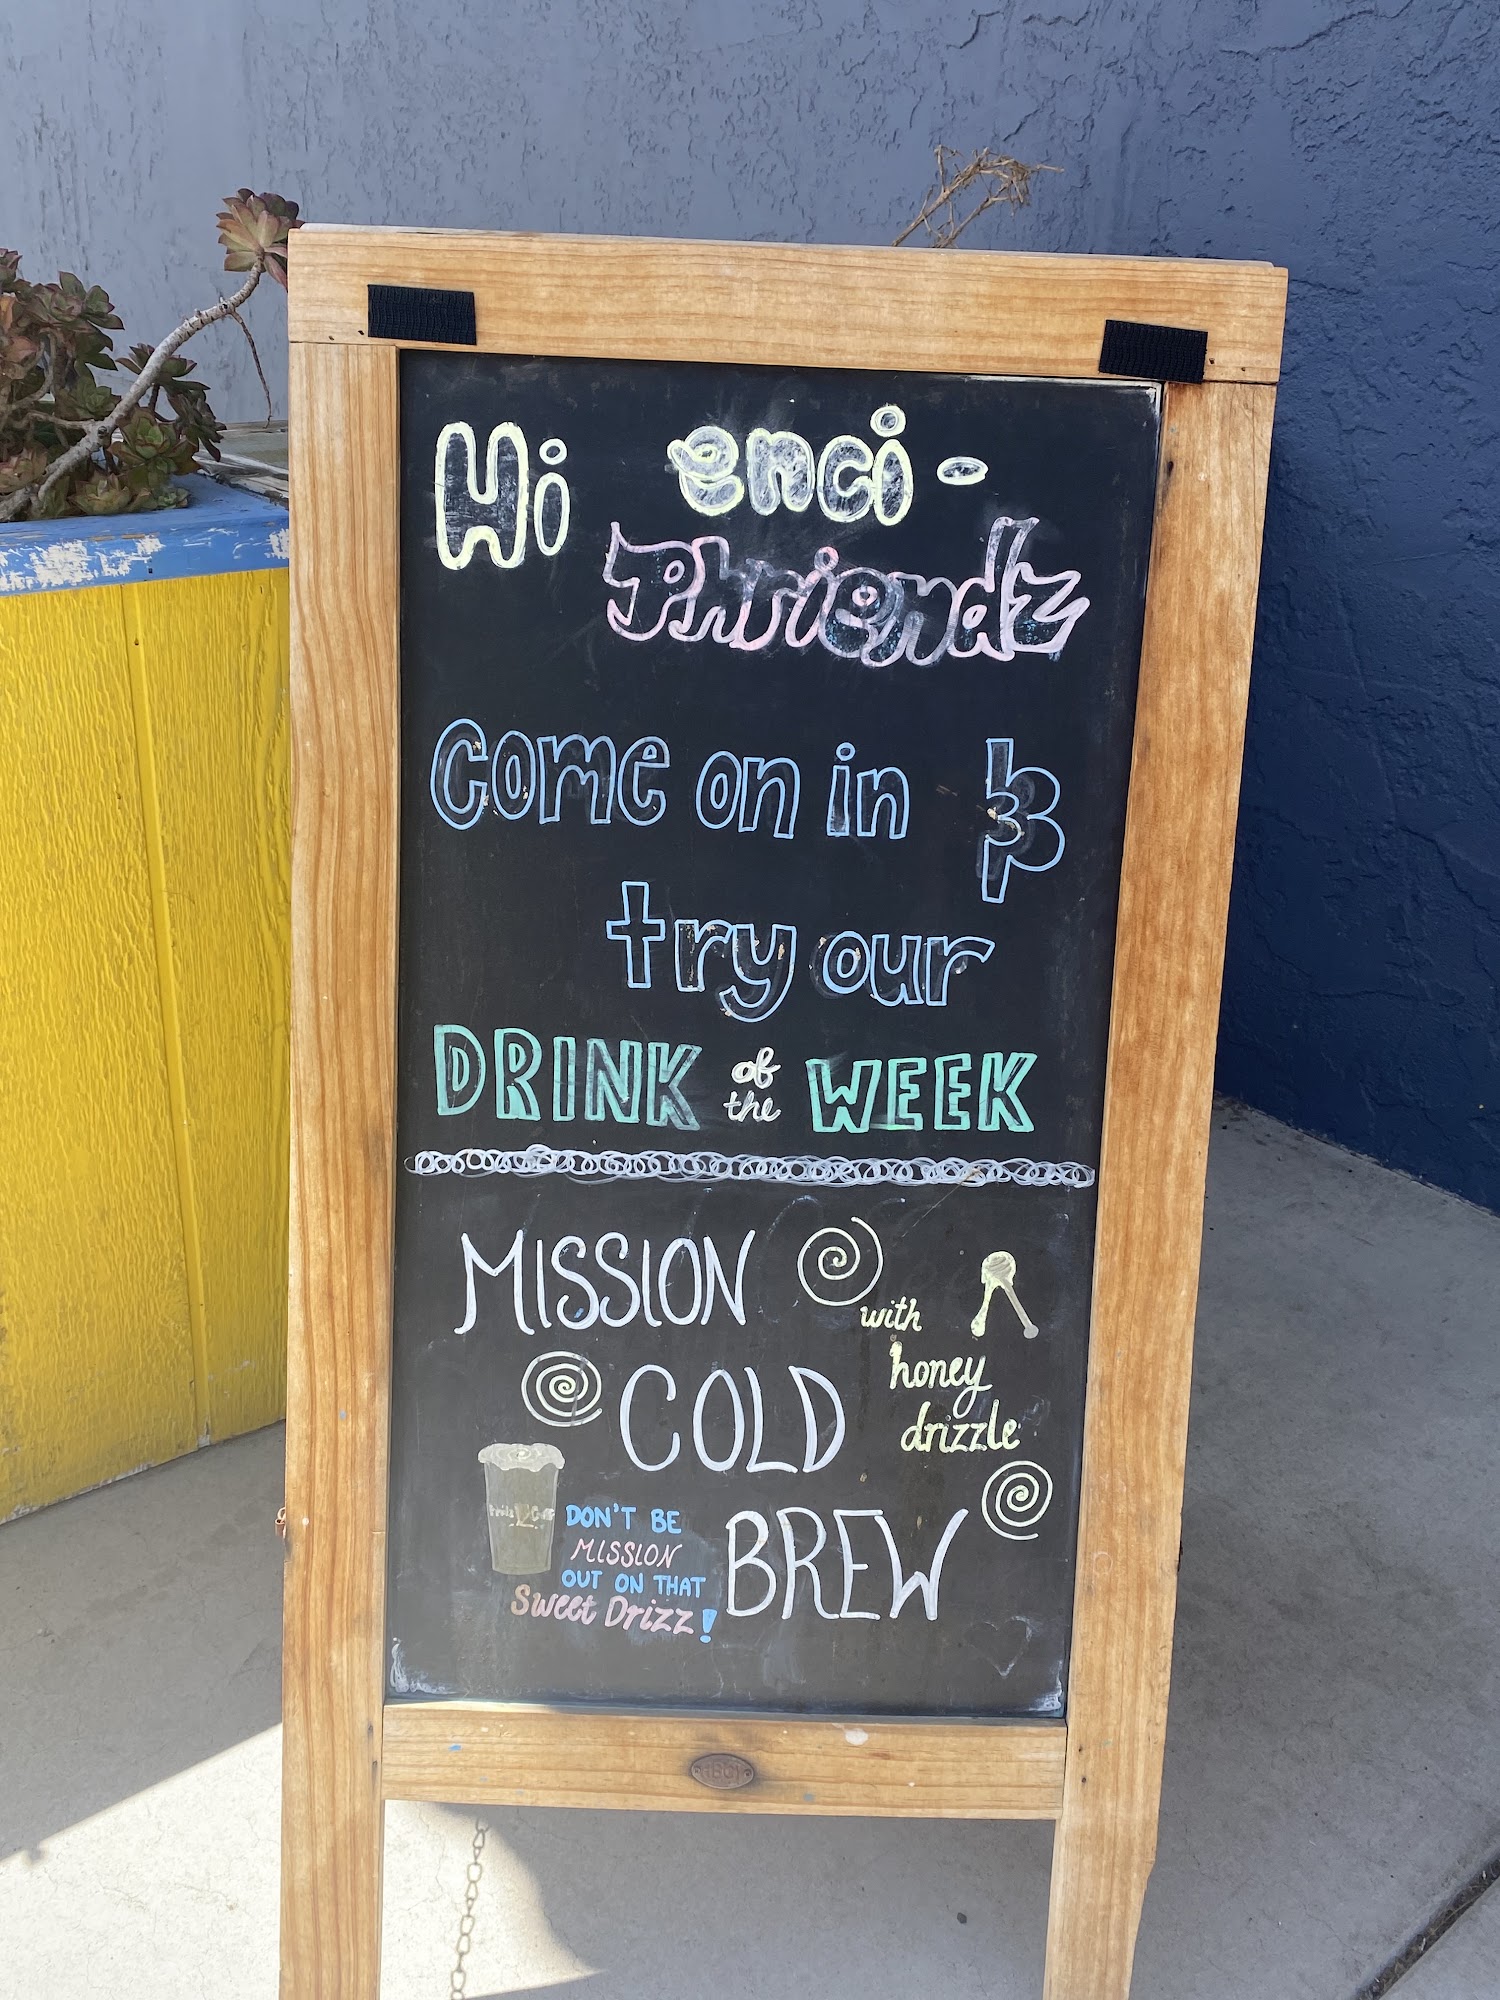 Hi enci-
Phriendz
Come on in &
try our
DRINK of the WEEK
MISSION
with
honey
drizzle
COLD
BREW
DON'T BE
MISSION
OUT ON THAT
Sweet Drizz!